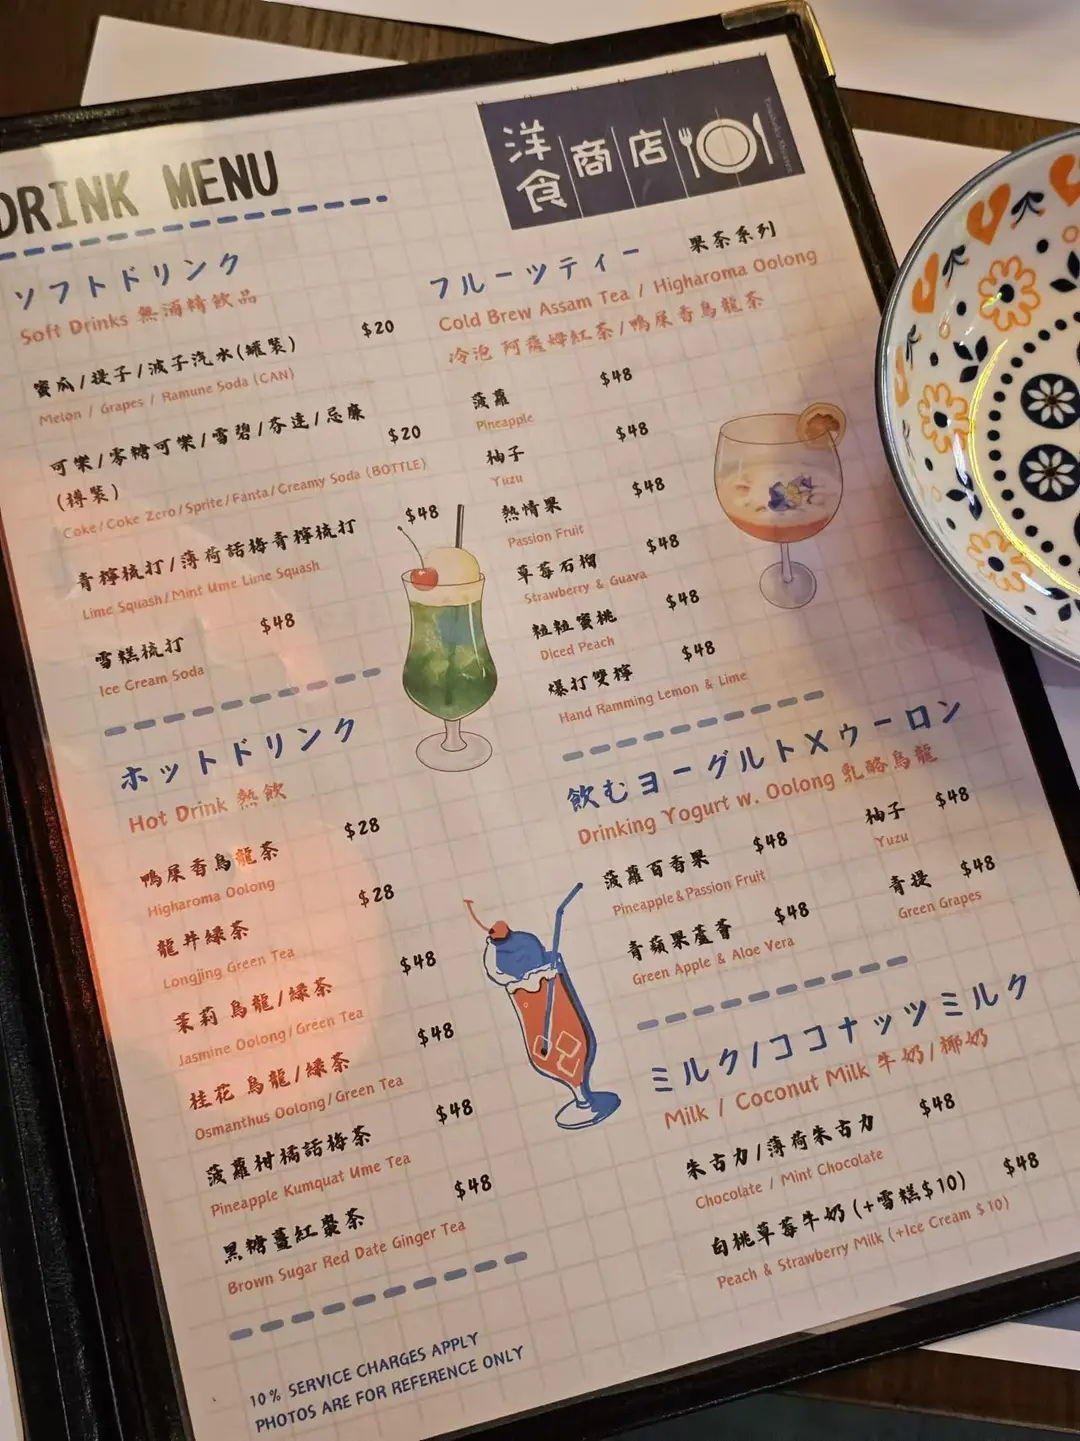 DRINK MENU
洋食商店
ソフトドリンク
Soft Drinks 無酒精飲品
蜜瓜/提子/波子汽水(罐裝) $20
Melon / Grapes / Ramune Soda (CAN)
可樂/零糖可樂/雪碧/芬達/忌廉
(樽裝) $20
Coke/Coke Zero/Sprite/Fanta/Creamy Soda (BOTTLE)
青檸梳打/薄荷話梅青檸梳打 $48
Lime Squash/Mint Ume Lime Squash
雪糕梳打 $48
Ice Cream Soda
ホットドリンク
Hot Drink 熱飲
鴨屎香烏龍茶 $28
Higharoma Oolong
龍井綠茶 $28
Longjing Green Tea
茉莉 烏龍/綠茶 $48
Jasmine Oolong/Green Tea
桂花 烏龍/綠茶 $48
Osmanthus Oolong/Green Tea
菠蘿柑橘話梅茶 $48
Pineapple Kumquat Ume Tea
黑糖薑紅棗茶 $48
Brown Sugar Red Date Ginger Tea
10% SERVICE CHARGES APPLY
PHOTOS ARE FOR REFERENCE ONLY
フルーツティー 果茶系列
Cold Brew Assam Tea / Higharoma Oolong
冷泡 阿薩姆紅茶/鴨屎香烏龍茶
菠蘿 $48
Pineapple
柚子 $48
Yuzu
熱情果 $48
Passion Fruit
草莓石榴 $48
Strawberry & Guava
粒粒蜜桃 $48
Diced Peach
爆打雙檸 $48
Hand Ramming Lemon & Lime
飲むヨーグルト×ウーロン
Drinking Yogurt w. Oolong 乳酪烏龍
菠蘿百香果 $48
Pineapple & Passion Fruit
柚子 $48
Yuzu
青蘋果蘆薈 $48
Green Apple & Aloe Vera
青提 $48
Green Grapes
ミルク/ココナッツミルク
Milk / Coconut Milk 牛奶/椰奶
朱古力/薄荷朱古力 $48
Chocolate / Mint Chocolate
白桃草莓牛奶(+雪糕$10) $48
Peach & Strawberry Milk (+Ice Cream $10)